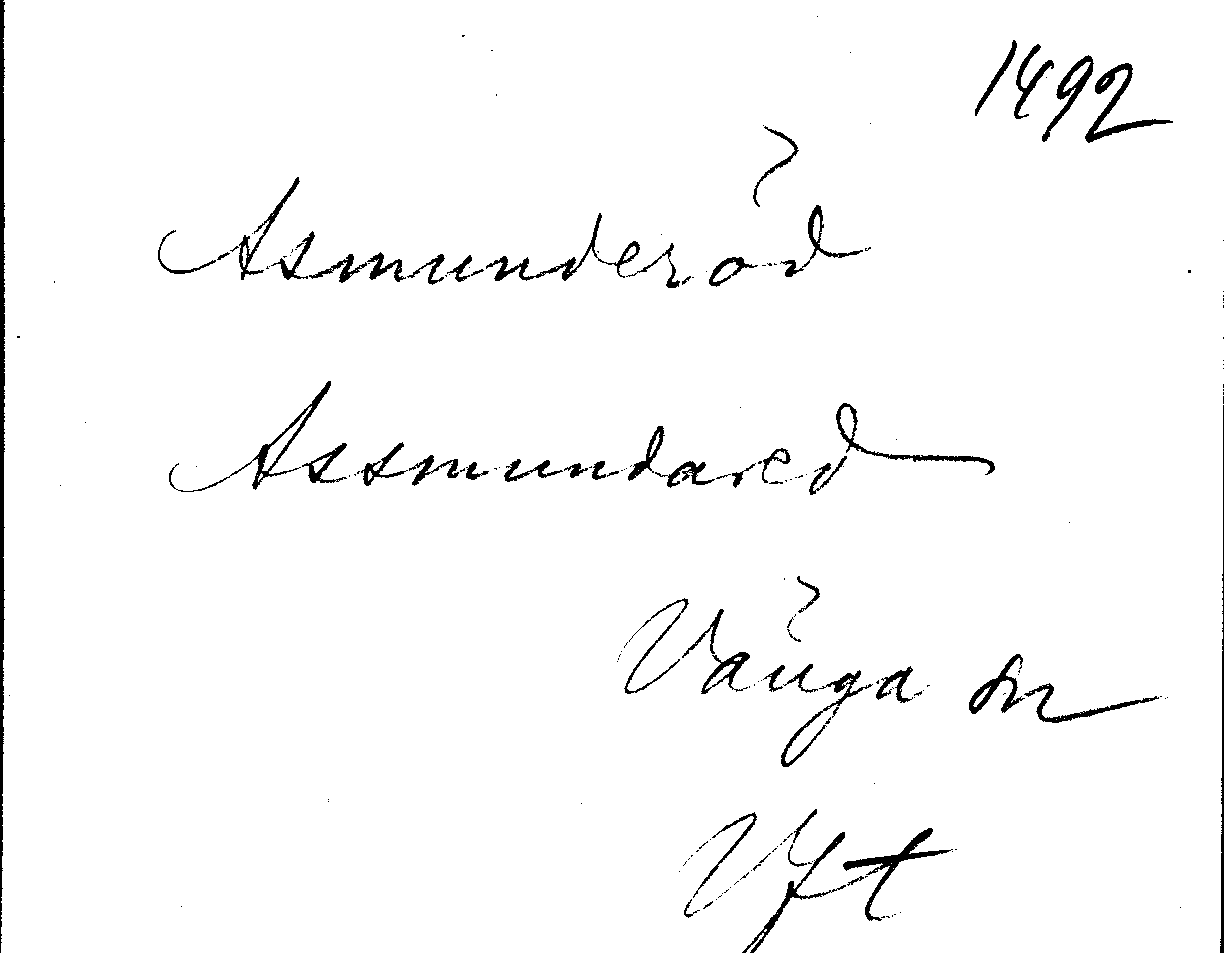 1492
Asmunderöd
Assmundared
Vänga sn
Vgt